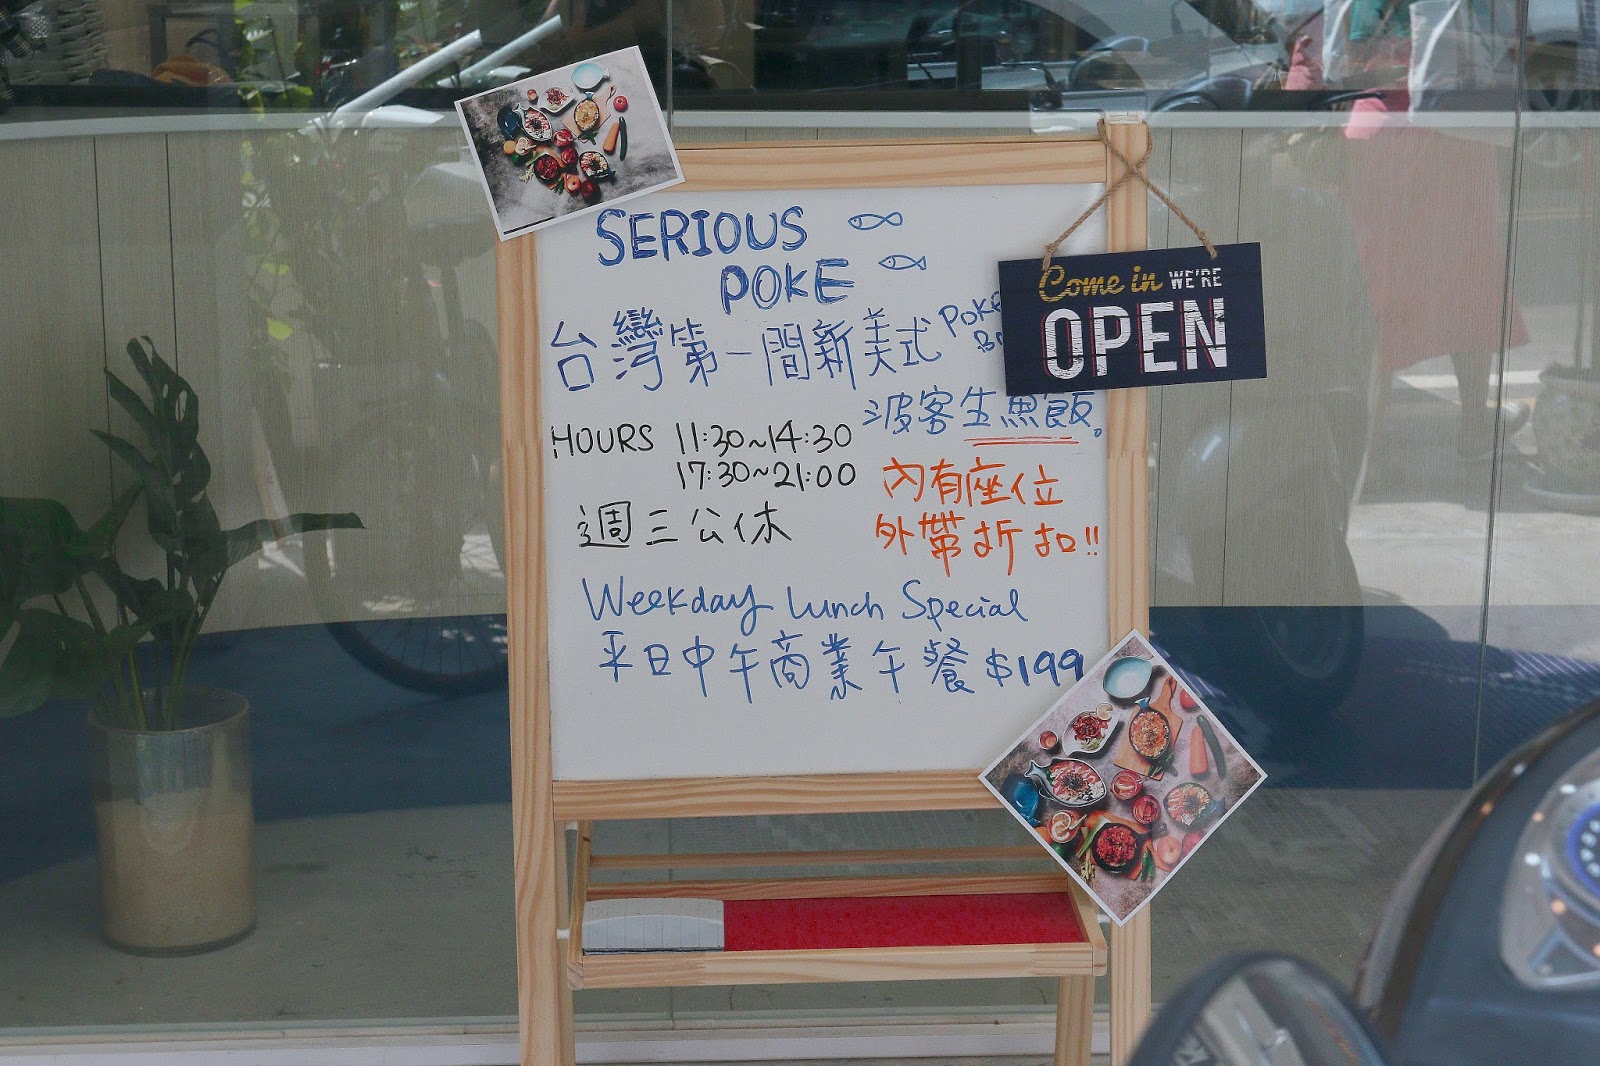 SERIOUS
POKE
台灣第一間新美式 POKE
波客生魚飯。
HOURS 11:30~14:30
17:30~21:00
週三公休
內有座位
外帶折扣!!
Weekday Lunch Special
平日中午商業午餐 $199
Come in WE'RE
OPEN